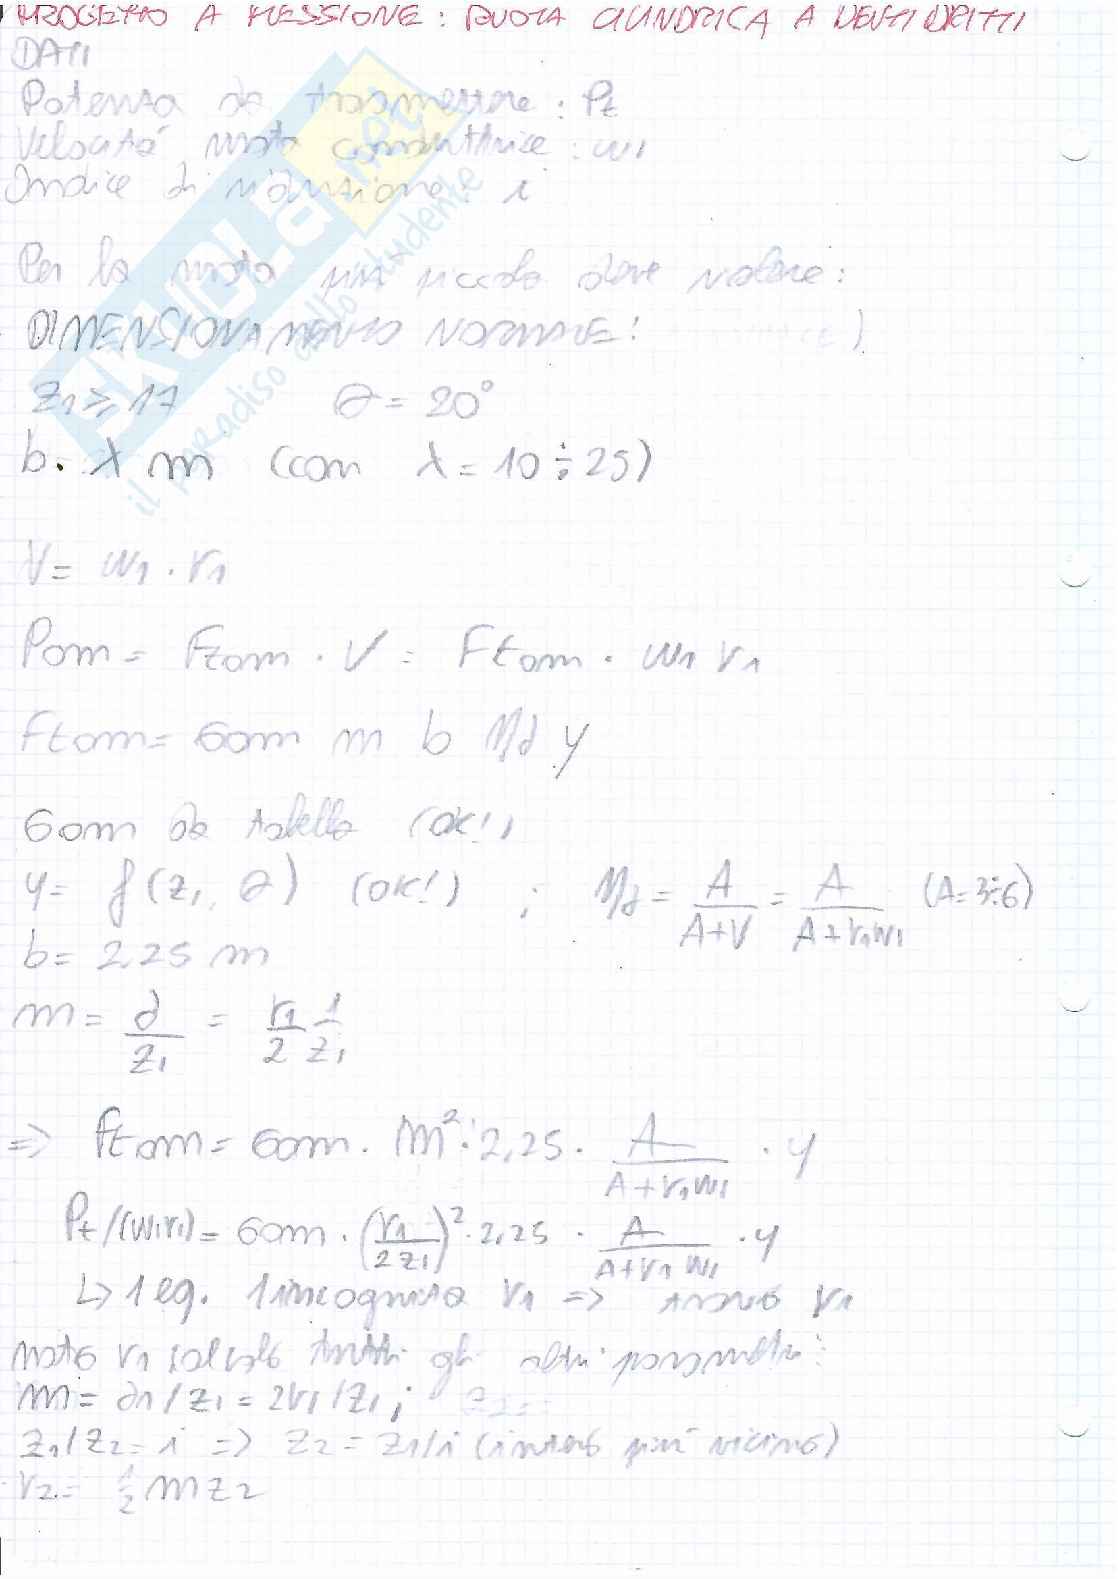 PROGETTO A FLESSIONE: RUOTA CILINDRICA A DENTI DRITTI
DATI
Potenza da trasmettere: Pt
Velocità ruota conduttrice: ω1
Indice di riduzione: i
Per la ruota più piccola deve valere:
DIMENSIONAMENTO NORMALE!
z1 ≥ 17 θ = 20°
b = λ m (con λ = 10 ÷ 25)
V = ω1 · r1
Pam = Ftam · V = Ftam · ω1 r1
Ftam = σam m b ηd y
σam da tabella (OK!)
y = f(z1, θ) (OK!) ; ηd = A/(A+V) = A/(A+r1ω1) (A=3÷6)
b = 2,25 m
m = d/z1 = r1/2 1/z1
=> Ftam = σam · m² · 2,25 · A/(A+r1ω1) · y
Pt/(ω1r1) = σam · (r1/2z1)² · 2,25 · A/(A+r1ω1) · y
↳ 1 eq. 1 incognita r1 => trovo r1
noto r1 calcolo tutti gli altri parametri:
m = d1/z1 = 2r1/z1;
z1/z2 = i => z2 = z1/i (intero più vicino)
r2 = 1/2 m z2
SKUOLA.net
il paradiso dello studente